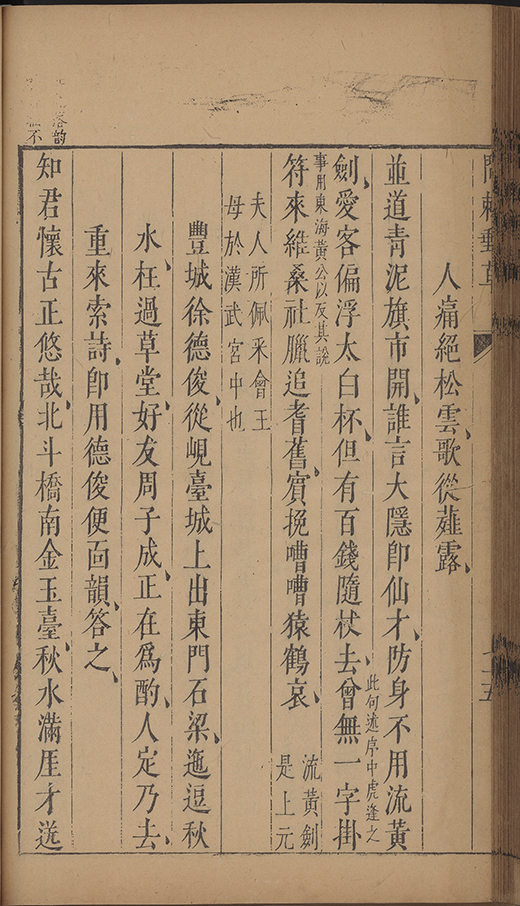 人痛絕松雲歌從薤露
並道青泥旗市開誰言大隱卽仙才防身不用流黃
劍愛客偏浮太白杯但有百錢隨杖去曾無一字掛
此何述序中虎逢之
事用東海黃公以反其說
符來維桑社臘追耆舊賓挽嘈嘈猿鶴哀
流黃劍
是上元
夫人所佩釆會王
母於漢武宮中也
豐城徐德俊從峴臺城上出東門石梁迤逗秋
水枉過草堂好友周子成正在爲酌人定乃去
重來索詩卽用德俊便面韻答之
知君懷古正悠哉北斗橋南金玉臺秋水滿厓才送